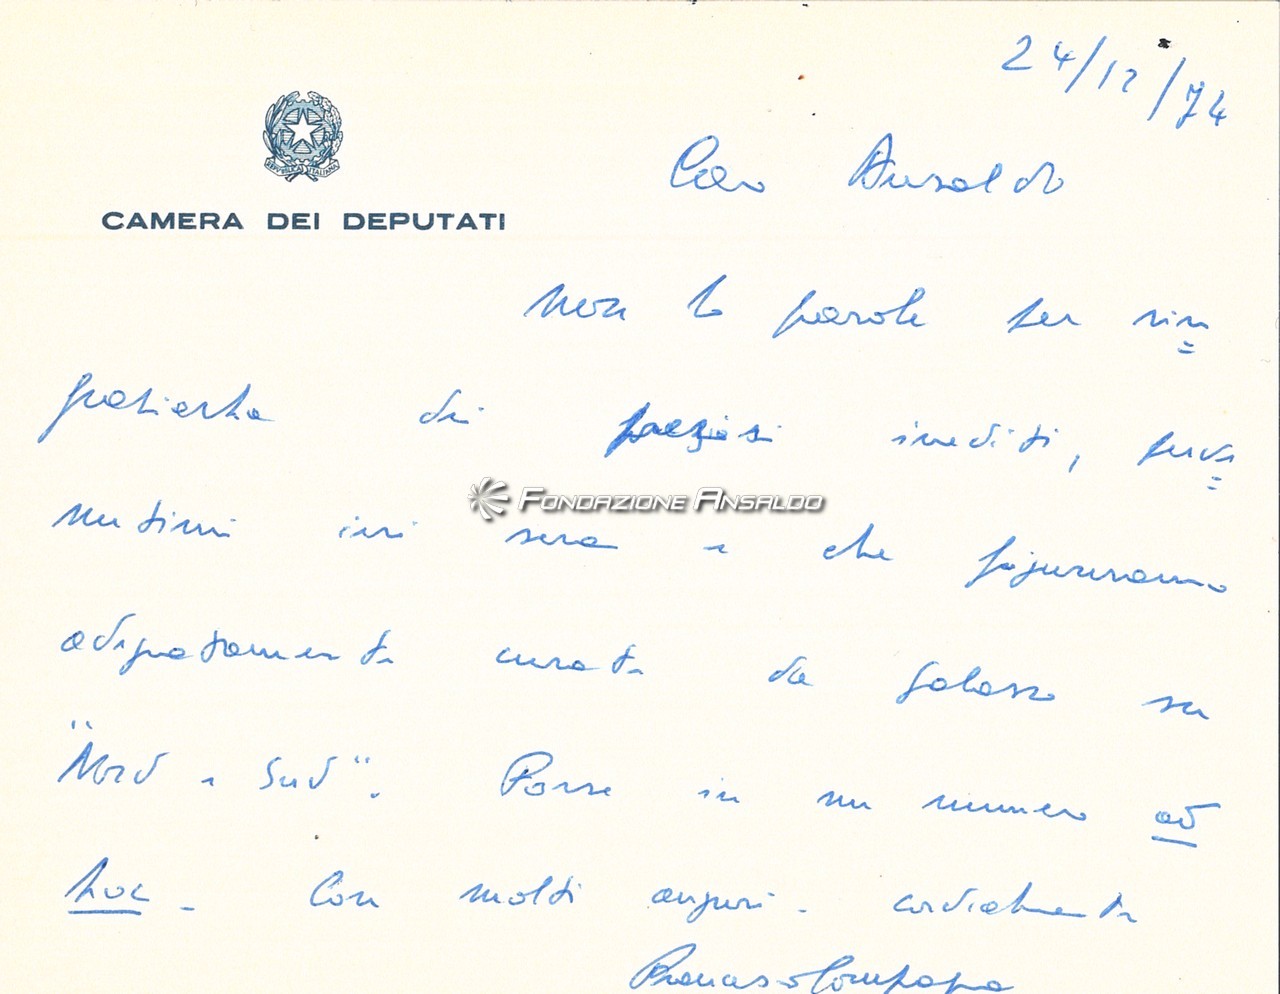 24/12/74
REPVBBLICA ITALIANA
CAMERA DEI DEPUTATI
Caro Ansaldo
non ho parole per rin=
graziarla di preziosi inediti, perve=
nutimi ieri sera e che figureranno
adeguatamente curati da Galasso su
"Nord e Sud". Forse in un numero ad
hoc - Con molti auguri - cordialmente
Francesco Compagna
FONDAZIONE ANSALDO